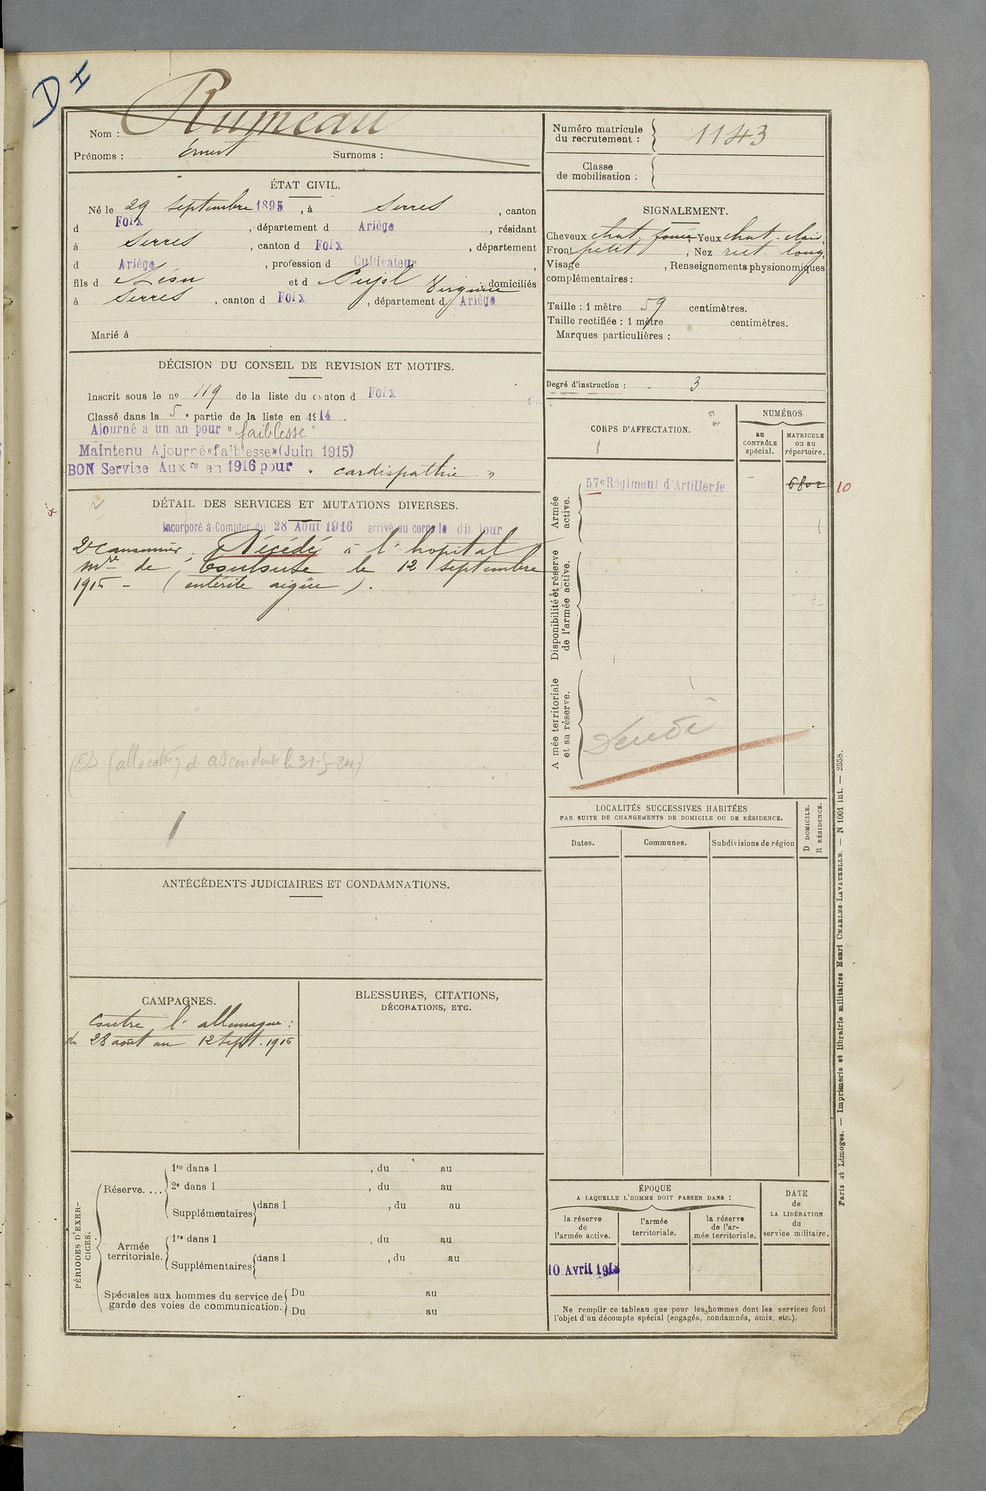 D 4
Nom : Rumeau
Prénoms : Ernest Surnoms :
ÉTAT CIVIL.
Né le 29 Septembre 1895, à Serres, canton
d Foix, département d Ariège, résidant
à Serres, canton d Foix, département
d Ariège, profession d Cultivateur
fils d Léon et d Pujol Virginie domiciliés
à Serres, canton d Foix, département d Ariège
Marié à
DÉCISION DU CONSEIL DE REVISION ET MOTIFS.
Inscrit sous le no 119 de la liste du canton d Foix
Classé dans la 5e partie de la liste en 1914.
Ajourné à un an pour "faiblesse"
Maintenu Ajourné «faiblesse» (Juin 1915)
BON Service Auxre en 1916 pour "cardiopathie"
DÉTAIL DES SERVICES ET MUTATIONS DIVERSES.
Incorporé à Compter du 28 Août 1916 arrivé au corps le dit jour
2e Canonnier. Décédé à l'hopital
mre de Toulouse le 12 Septembre
1916 - (entérite aigüe).
ANTÉCÉDENTS JUDICIAIRES ET CONDAMNATIONS.
CAMPAGNES.
Contre l'allemagne :
du 28 août au 12 Sept. 1916
BLESSURES, CITATIONS,
DÉCORATIONS, ETC.
PÉRIODES D'EXERCICES.
Réserve....
1re dans l , du au
2e dans l , du au
Supplémentaires dans l , du au
Armée territoriale.
1re dans l , du au
Supplémentaires dans l , du au
Spéciales aux hommes du service de garde des voies de communication.
Du au
Du au
Numéro matricule du recrutement : 1143
Classe de mobilisation :
SIGNALEMENT.
Cheveux chat. foncé Yeux chat. clair
Front petit, Nez rect. long
Visage , Renseignements physionomiques
complémentaires :
Taille : 1 mètre 59 centimètres.
Taille rectifiée : 1 mètre centimètres.
Marques particulières :
Degré d'instruction : 3
CORPS D'AFFECTATION.
NUMÉROS
au CONTRÔLE spécial.
MATRICULE ou au répertoire.
Armée active.
57e Régiment d'Artillerie 6802 10
Disponibilité et réserve de l'armée active.
Armée territoriale et sa réserve.
LOCALITÉS SUCCESSIVES HABITÉES
PAR SUITE DE CHANGEMENTS DE DOMICILE OU DE RÉSIDENCE.
Dates. Communes. Subdivisions de région
D DOMICILE.
R RÉSIDENCE.
ÉPOQUE
A LAQUELLE L'HOMME DOIT PASSER DANS :
la réserve de l'armée active.
l'armée territoriale.
la réserve de l'armée territoriale.
DATE de LA LIBÉRATION du service militaire.
10 Avril
Ne remplir ce tableau que pour les hommes dont les services font
l'objet d'un décompte spécial (engagés, condamnés, omis, etc.).
Paris et Limoges. — Imprimerie et librairie militaires Henri CHARLES-LAVAUZELLE. — N 1001 int. — 2558.